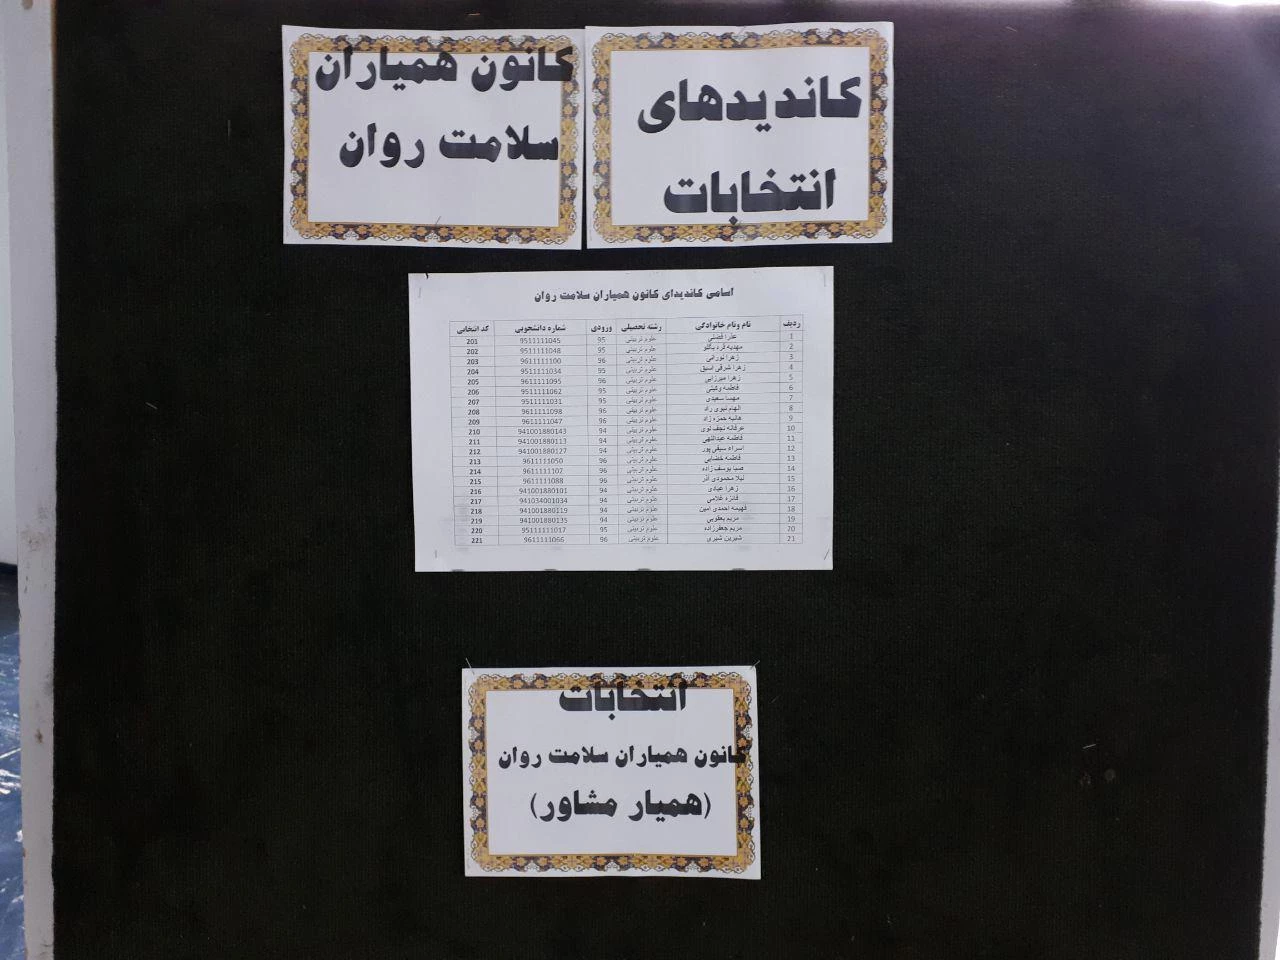 کاندیدهای
انتخابات
کانون همیاران
سلامت روان
اسامی کاندیدای کانون همیاران سلامت روان
ردیف نام ونام خانوادگی رشته تحصیلی ورودی شماره دانشجویی کد انتخابی
1 عذرا فضلی علوم تربیتی 95 9511111045 201
2 مهدیه قره باغلو علوم تربیتی 95 9511111048 202
3 زهرا نورانی علوم تربیتی 96 9611111100 203
4 زهرا شرقی اسبق علوم تربیتی 95 9511111034 204
5 زهرا میرزایی علوم تربیتی 96 9611111095 205
6 فاطمه وکیلی علوم تربیتی 95 9511111062 206
7 مهسا سعیدی علوم تربیتی 95 9511111031 207
8 الهام نبوی راد علوم تربیتی 96 9611111098 208
9 هانیه حمزه زاد علوم تربیتی 96 9611111047 209
10 عرفانه نجف لوی علوم تربیتی 94 941001880143 210
11 فاطمه عبدالهی علوم تربیتی 94 941001880113 211
12 اسراء سیفی پور علوم تربیتی 94 941001880127 212
13 فاطمه خضایی علوم تربیتی 96 9611111050 213
14 صبا یوسف زاده علوم تربیتی 96 9611111107 214
15 لیلا محمودی آذر علوم تربیتی 96 9611111088 215
16 زهرا عبادی علوم تربیتی 94 941001880101 216
17 فائزه غلامی علوم تربیتی 94 941034001034 217
18 فهیمه احمدی امین علوم تربیتی 94 941001880119 218
19 مریم یعقوبی علوم تربیتی 94 941001880135 219
20 مریم جعفرزاده علوم تربیتی 95 95111111017 220
21 شیرین شیری علوم تربیتی 96 9611111066 221
انتخابات
کانون همیاران سلامت روان
(همیار مشاور)